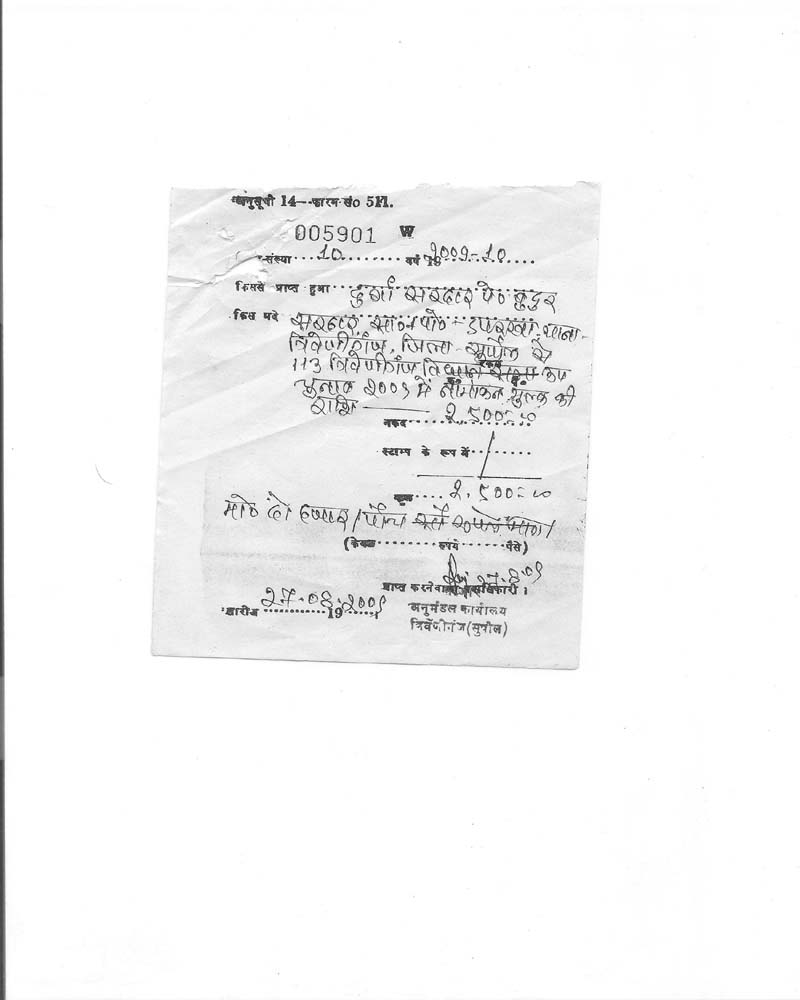 अनुसूची 14--फारम सं० 511.
005901 W
संख्या 10 वर्ष 19 2009-10
किससे प्राप्त हुआ दुर्गा सरदार पे०
किस मदे सरदार, सा०+पो०- डपरखा, थाना-
त्रिवेणीगंज, जिला- सुपौल से
113 त्रिवेणीगंज विधान सभा उप
चुनाव 2009 में नामांकन शुल्क की
राशि — 2,500=00
नकद
स्टाम्प के रूप में
कुल 2,500=00
मो० दो हजार पाँच सौ रूपये मात्र/
(केवल रुपये पैसे)
27.8.09
प्राप्त करनेवाला पदाधिकारी ।
अनुमंडल कार्यालय
त्रिवेणीगंज (सुपौल)
तारीख 27.08.2009 19